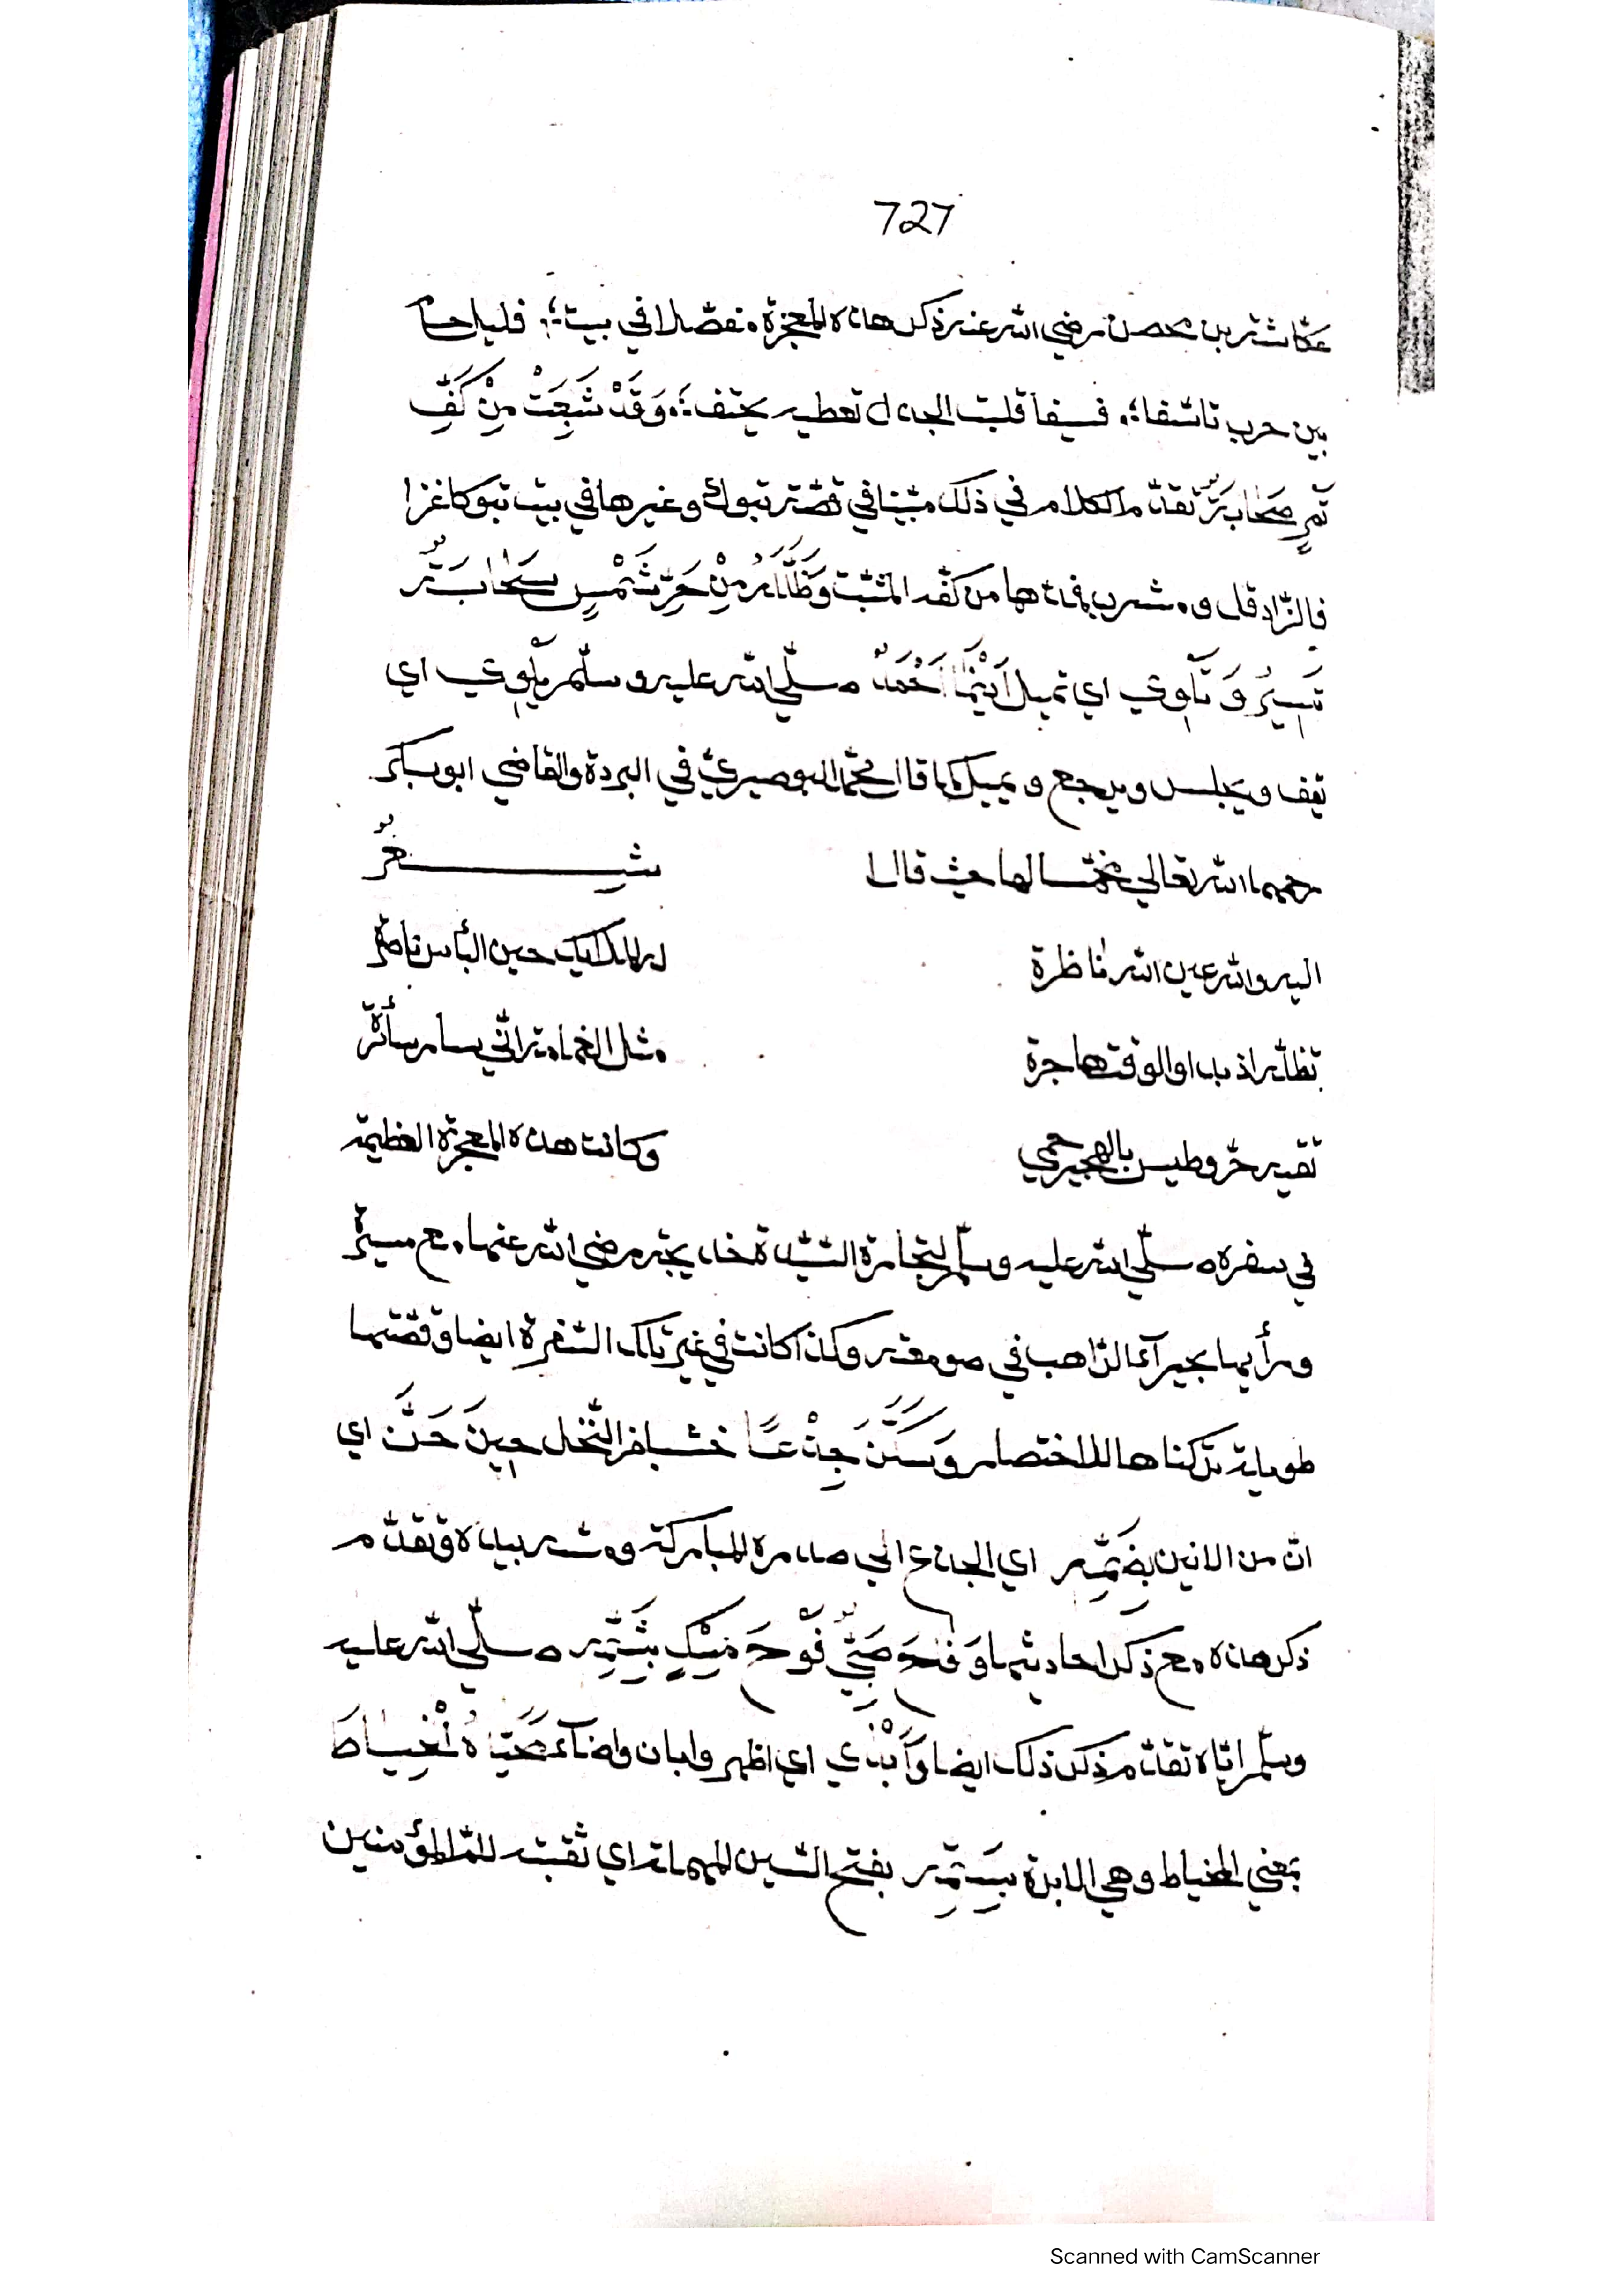 727
عكاشة بن محصن رضي الله عنه ذكر هذه المعجزة مفصلا في بيت؛ فليل حسام
بين حرب تاشفا؛ فسيفا قلبت الجدل تعطيه يحتف؛ وَقَدْ شَبِعَتْ مِنْ كَفِّ
تَمْرٍ صَحَابَتُهُ تقدّم الكلام في ذلك مبيّنا في قصّة تبوك وغيرها في بيت تبوكا غزا
فالزّاد قل ومشربه فمن كفّه المثبت وَظَلَّلَهُ مِنْ حَرِّ شَمْسٍ سَحَابَةٌ
تَسِيرُ وَتَلْوِي اي تميل أَيْنَمَا أَحْمَدٌ صلّي الله عليه وسلّم يَلْوِي اي
يقف ويجلس ويرجع ويميل كما قال محمّد البوصيريّ في البردة والقاضي ابو بكر
رحمهما الله تعالي مخمّسا لها حيث قالا شِعْرٌ
اليه والله عين الله ناظرة له ملائك حين البأس ناصرة
تظلّه اذ بدا والوقت هاجرة مثل الغمامة انّي سار سائرة
تقيه حرّ وطيس بالهجير حمي وكانت هذه المعجزة العظيمة
في سفره صلّي الله عليه وسلّم لتجارة السّيّدة خديجة رضي الله عنها مع ميسرة
ورأيها بحيرآء الرّاهب في صومعته وكذا كانت في غير تلك السّفرة ايضا وقصّتها
طويلة تركناها للاختصار وَسَكَّنَ جِذْعًا خشبا من النّخل حِينَ حَنَّ اي
انّ من الانين بِضَمِّهِ اي الجذع الي صدره المباركة ومسّه بيده وتقدّم
ذكر هذه مع ذكر احاديثها وَفَوَّحَ صَبِيٌّ فَوْحَ مِسْكٍ بِشَمِّهِ صلّي الله عليه
وسلّم ايّاه تقدّم ذكر ذلك ايضا وَأَبْدَي اي اظهر وابان واضآء مُحَيَّاهُ الْخِيَاطَ
بمعني المخياط وهي الابرة بِسَمِّهِ بفتح السّين المهملة اي ثقبته للامّ المؤمنين
Scanned with CamScanner